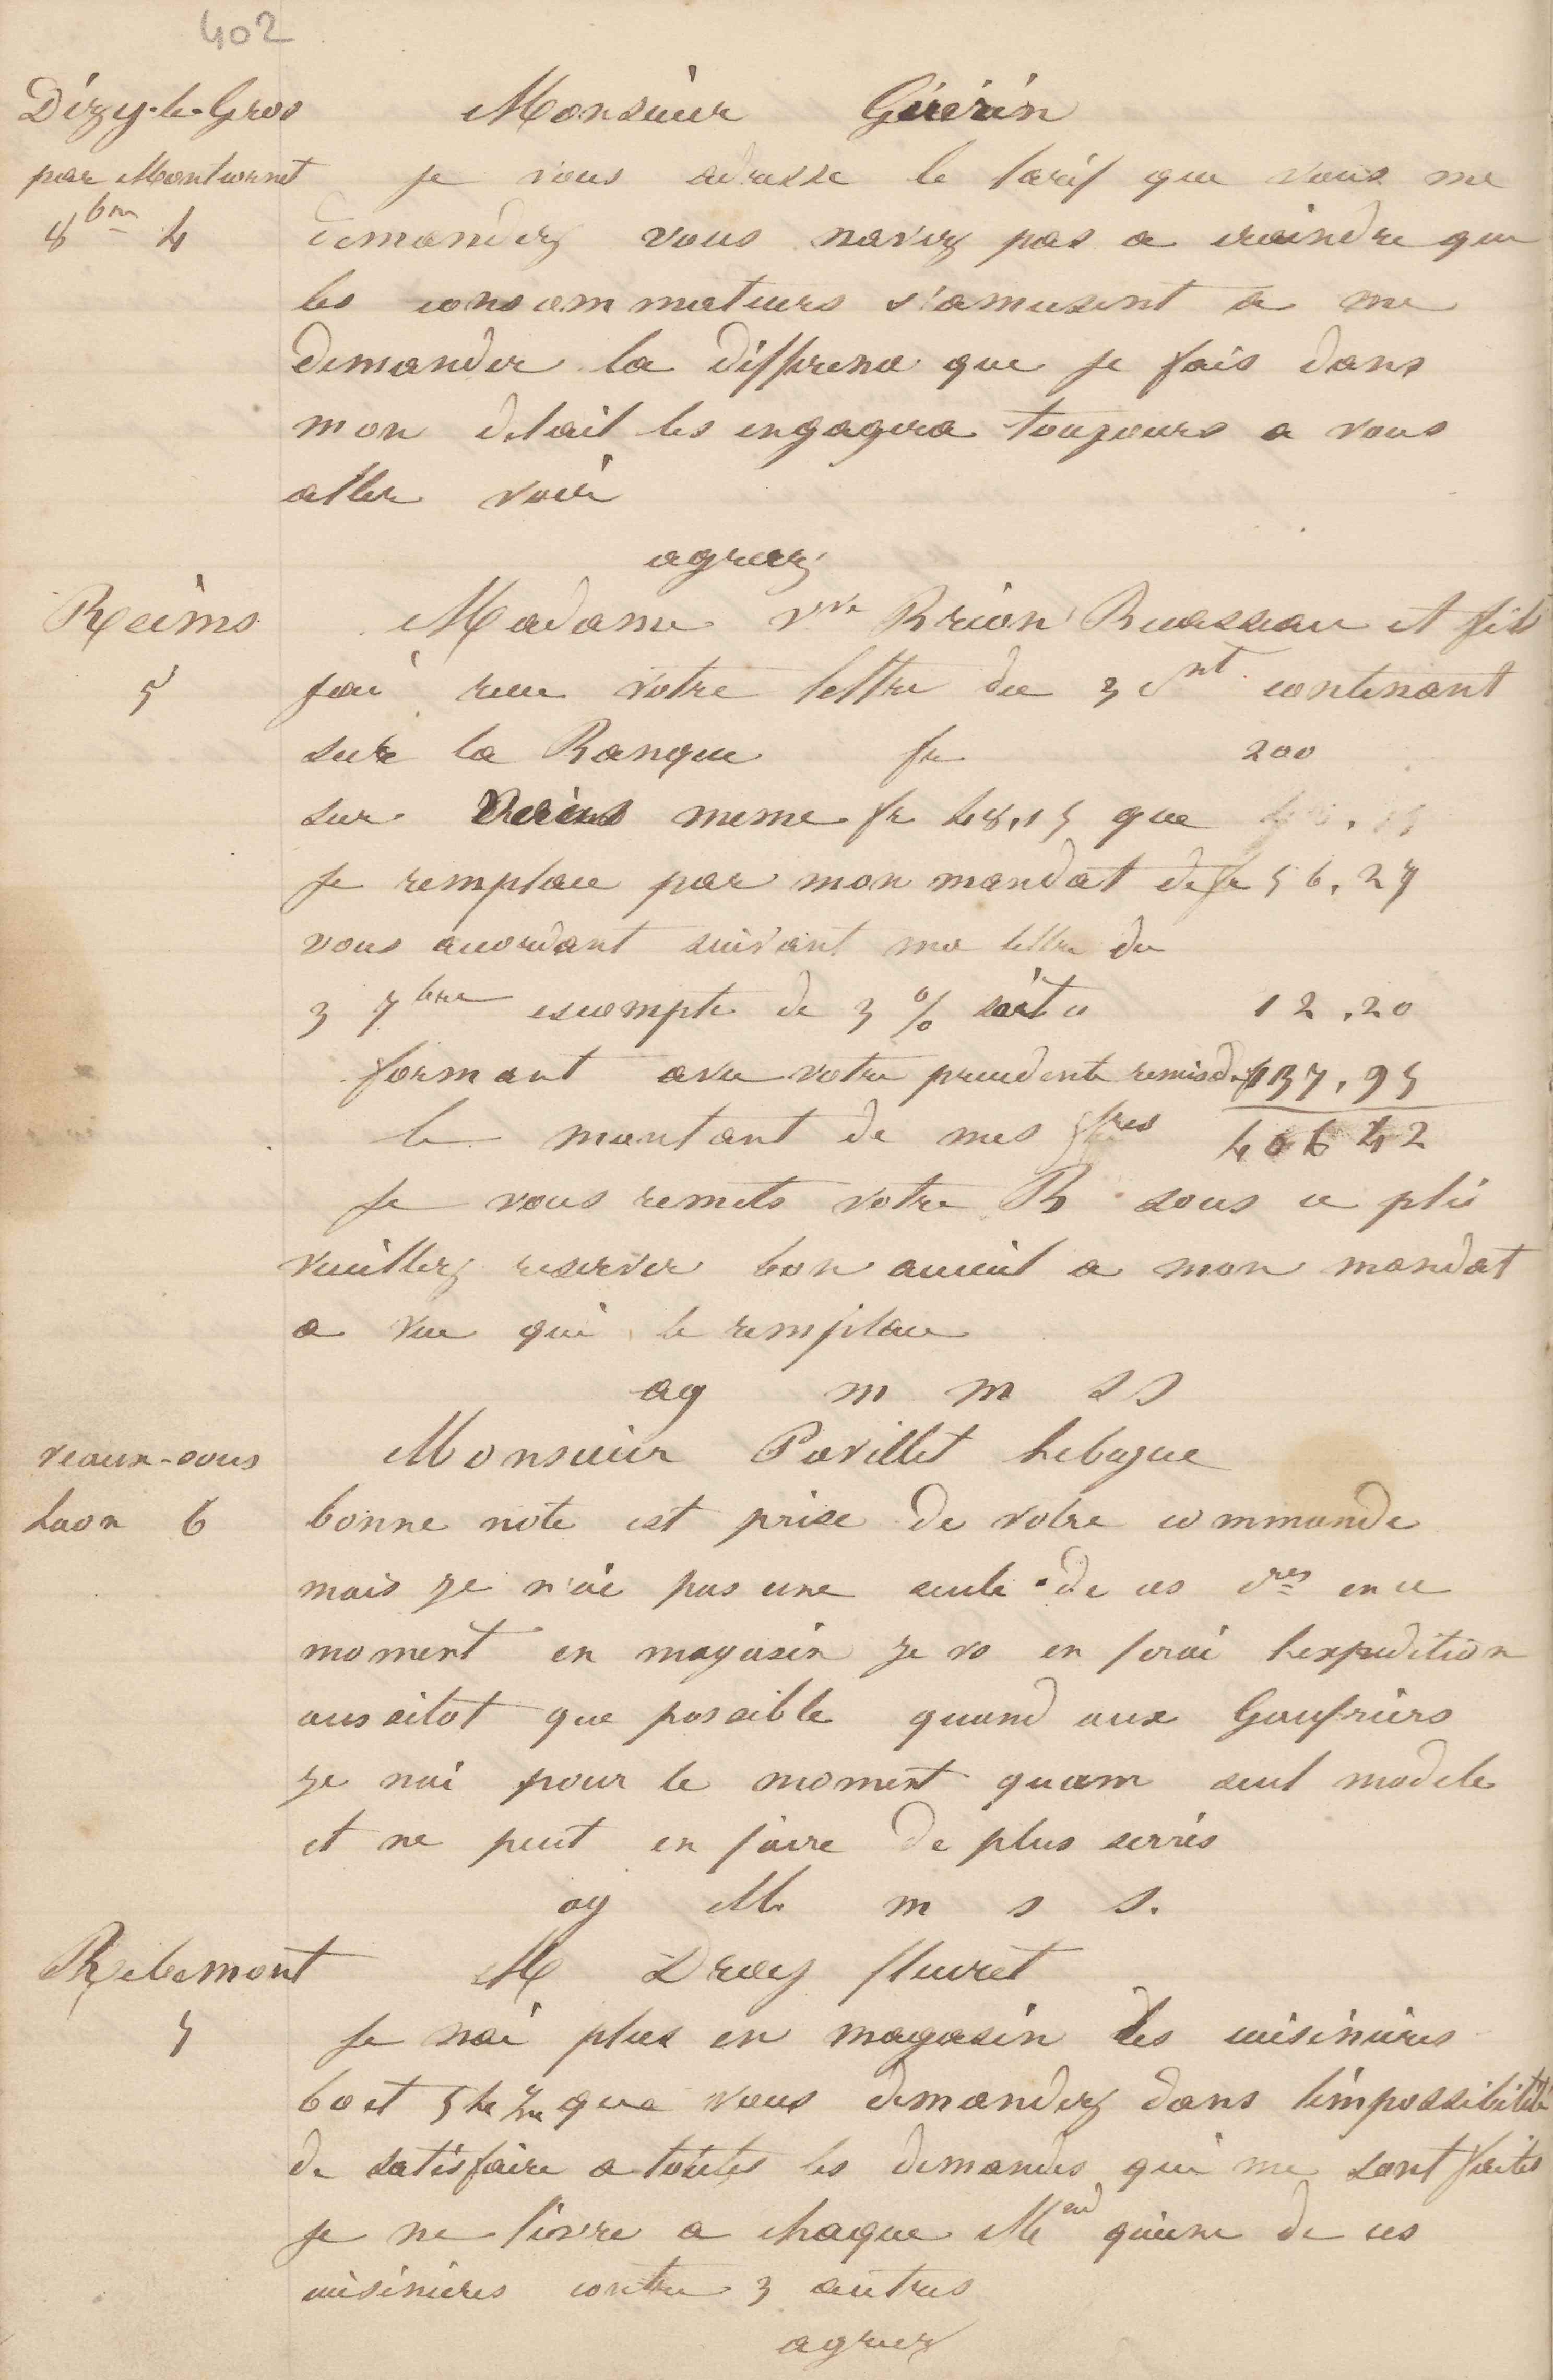 402
Dizy-le-Gros Monsieur Guérin
par Montcornet je vous adresse le tarif que vous me
8bre 4 demandez vous navez pas a craindre que
les consommateurs s'amusent a me
demander la diffrence que je fais dans
mon detail les engagera toujours a vous
aller voir
agreez
Reims Madame vve Brion Ruasseau et fils
5 jai recu votre lettre du 3 cnt contenant
sur la Banque fr 200
sur Reims meme fr 48,15 que
je remplace par mon mandat de fr 56,27
vous accordant suivant ma lettre du
3 7bre escompte de 3 % soit a 12,20
formant avec votre precedente remise de f 137,95
le montant de mes fres 406 42
je vous remets votre B sous ce plis
veuillez reserver bon accueil a mon mandat
a vue qui le remplace
ag m m s s
veaux-sous Monsieur Pavillet Lebegue
Laon 6 bonne note est prise de votre commande
mais je n'ai pas une seule de ces cres en ce
moment en magasin je vs en ferai lexpedition
aussitot que possible quand aux Gaufriers
je nai pour le moment quam seul modele
et ne peut en faire de plus serrés
ag M m s s.
Ribemont M Druy fleuret
5 Je nai plus en magasin des cuisinieres
60 et que vous demandez dans l'impossibilité
de satisfaire a toutes les demandes qui me sont faites
je ne livre a chaque Md qu'une de ces
cuisinieres contre 3 autres
agreez